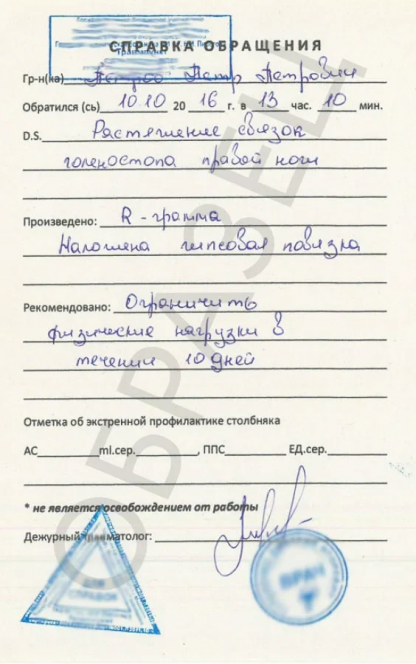 СПРАВКА ОБРАЩЕНИЯ
Гр-н(ка) Петров Петр Петрович
Обратился (сь) 10.10 20 16 г. в 13 час. 10 мин.
D.S. Растяжение связок
голеностопа правой ноги
Произведено: R-грамма
Наложена гипсовая повязка
Рекомендовано: Ограничить
физические нагрузки в
течении 10 дней
Отметка об экстренной профилактике столбняка
АС ml.сер. , ППС ЕД.сер.
* не является освобождением от работы
Дежурный травматолог:
ВРАЧ
ОБРАЗЕЦ